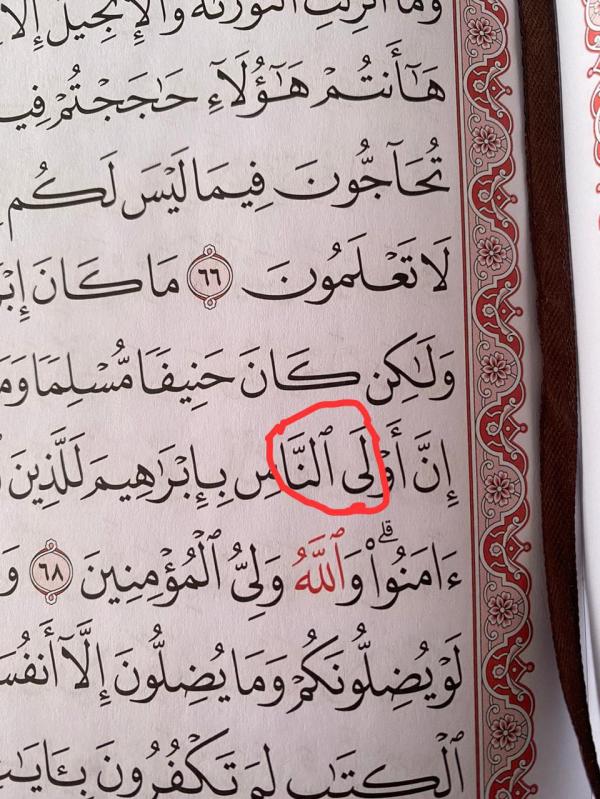 وَمَآ أُنزِلَتِ ٱلتَّوْرَىٰةُ وَٱلْإِنجِيلُ إِلَّا
هَـٰٓأَنتُمْ هَـٰٓؤُلَآءِ حَـٰجَجْتُمْ فِي
تُحَآجُّونَ فِيمَا لَيْسَ لَكُم
لَا تَعْلَمُونَ ٦٦ مَا كَانَ
وَلَـٰكِن كَانَ حَنِيفًا مُّسْلِمًا وَمَ
إِنَّ أَوْلَى ٱلنَّاسِ بِإِبْرَٰهِيمَ لَلَّذِينَ
ءَامَنُوا۟ ۗ وَٱللَّهُ وَلِىُّ ٱلْمُؤْمِنِينَ ٦٨ وَ
لَوْ يُضِلُّونَكُمْ وَمَا يُضِلُّونَ إِلَّآ أَنفُسَ
ٱلْكِتَـٰبِ لِمَ تَكْفُرُونَ بِـَٔايَـٰتِ